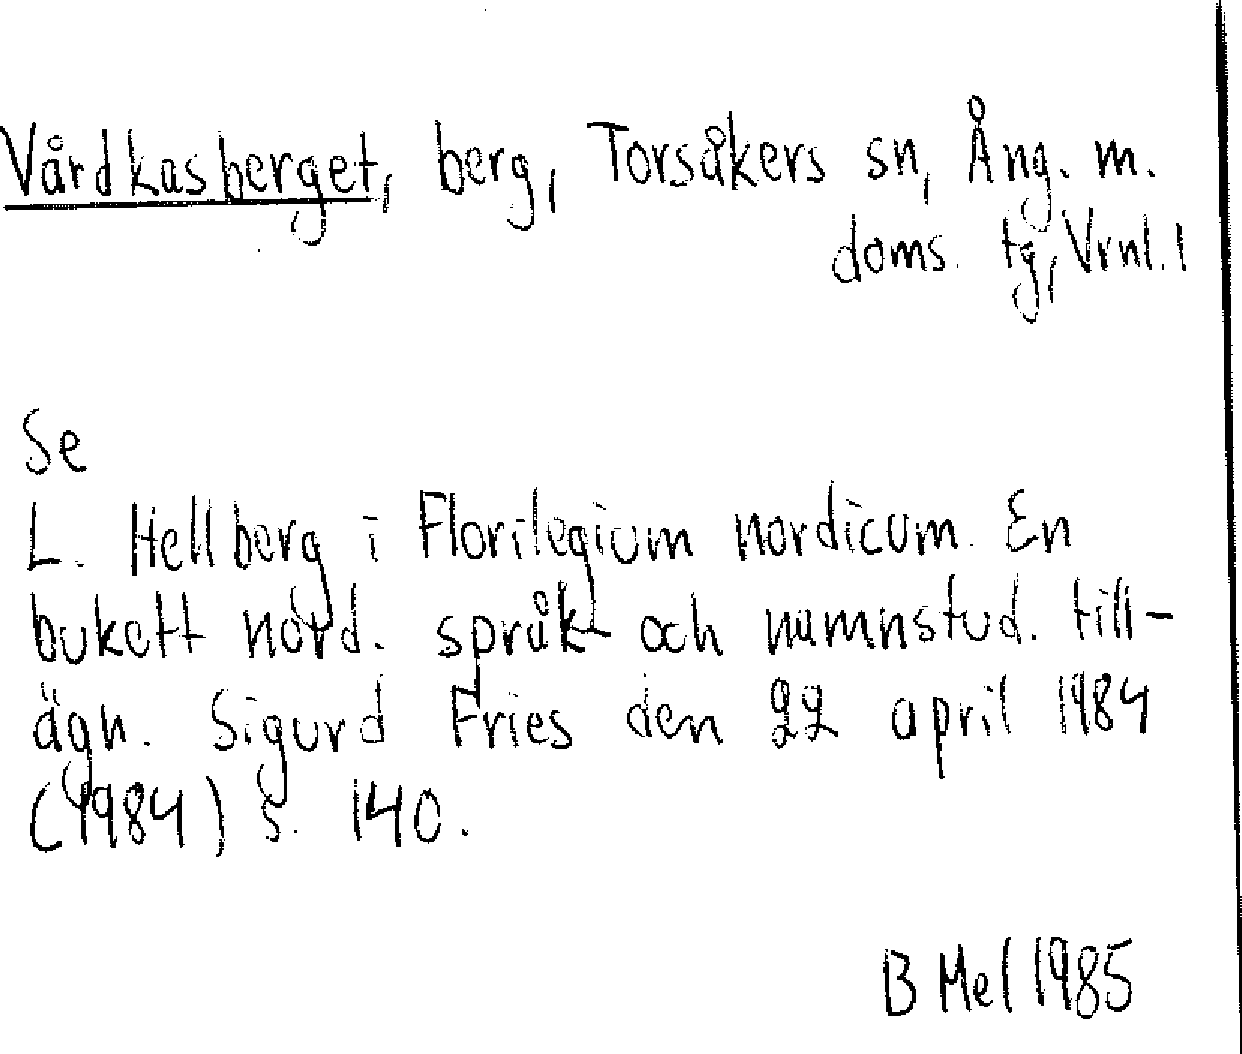 Vårdkasberget, berg, Torsåkers sn, Ång. m.
doms. tg, Vrnl. 1
Se
L. Hellberg i Florilegium nordicum. En
bukett nord. språk- och namnstud. till-
ägn. Sigurd Fries den 22 april 1984
(1984) s. 140.
B Mel 1985